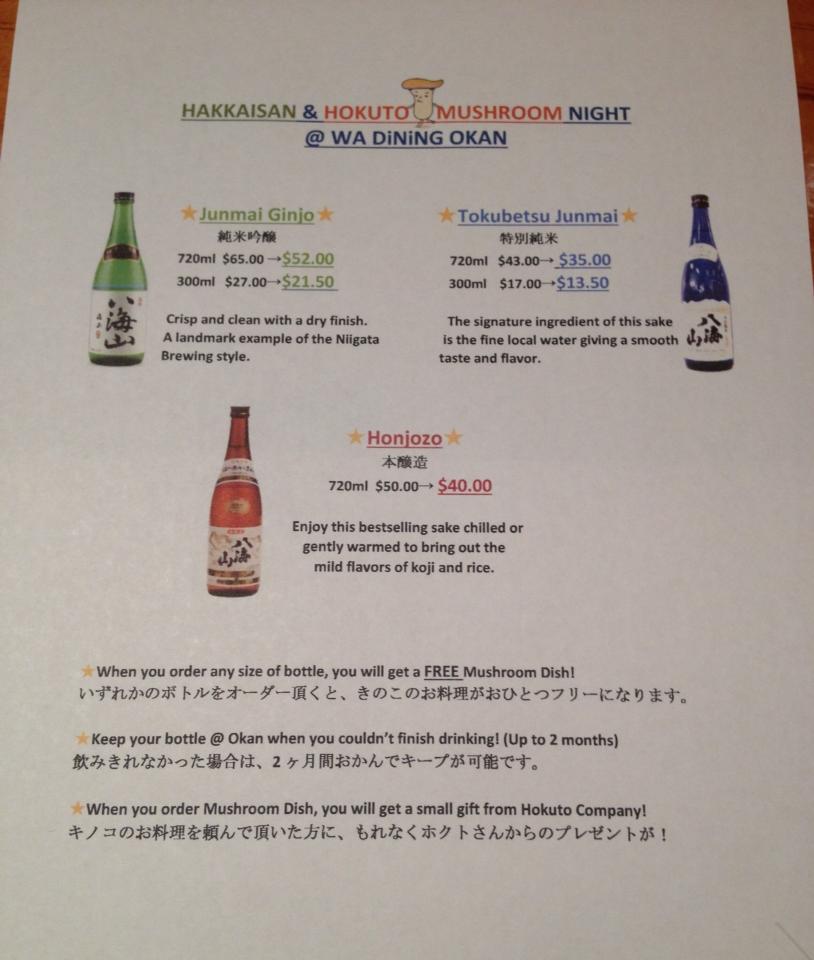 HAKKAISAN & HOKUTO MUSHROOM NIGHT
@ WA DiNiNG OKAN
★Junmai Ginjo★
純米吟醸
720ml $65.00→$52.00
300ml $27.00→$21.50
Crisp and clean with a dry finish.
A landmark example of the Niigata
Brewing style.
★Tokubetsu Junmai★
特別純米
720ml $43.00→ $35.00
300ml $17.00→$13.50
The signature ingredient of this sake
is the fine local water giving a smooth
taste and flavor.
八海山
八海山
★Honjozo★
本醸造
720ml $50.00→ $40.00
Enjoy this bestselling sake chilled or
gently warmed to bring out the
mild flavors of koji and rice.
八海山
★When you order any size of bottle, you will get a FREE Mushroom Dish!
いずれかのボトルをオーダー頂くと、きのこのお料理がおひとつフリーになります。
★Keep your bottle @ Okan when you couldn't finish drinking! (Up to 2 months)
飲みきれなかった場合は、2 ヶ月間おかんでキープが可能です。
★When you order Mushroom Dish, you will get a small gift from Hokuto Company!
キノコのお料理を頼んで頂いた方に、もれなくホクトさんからのプレゼントが！